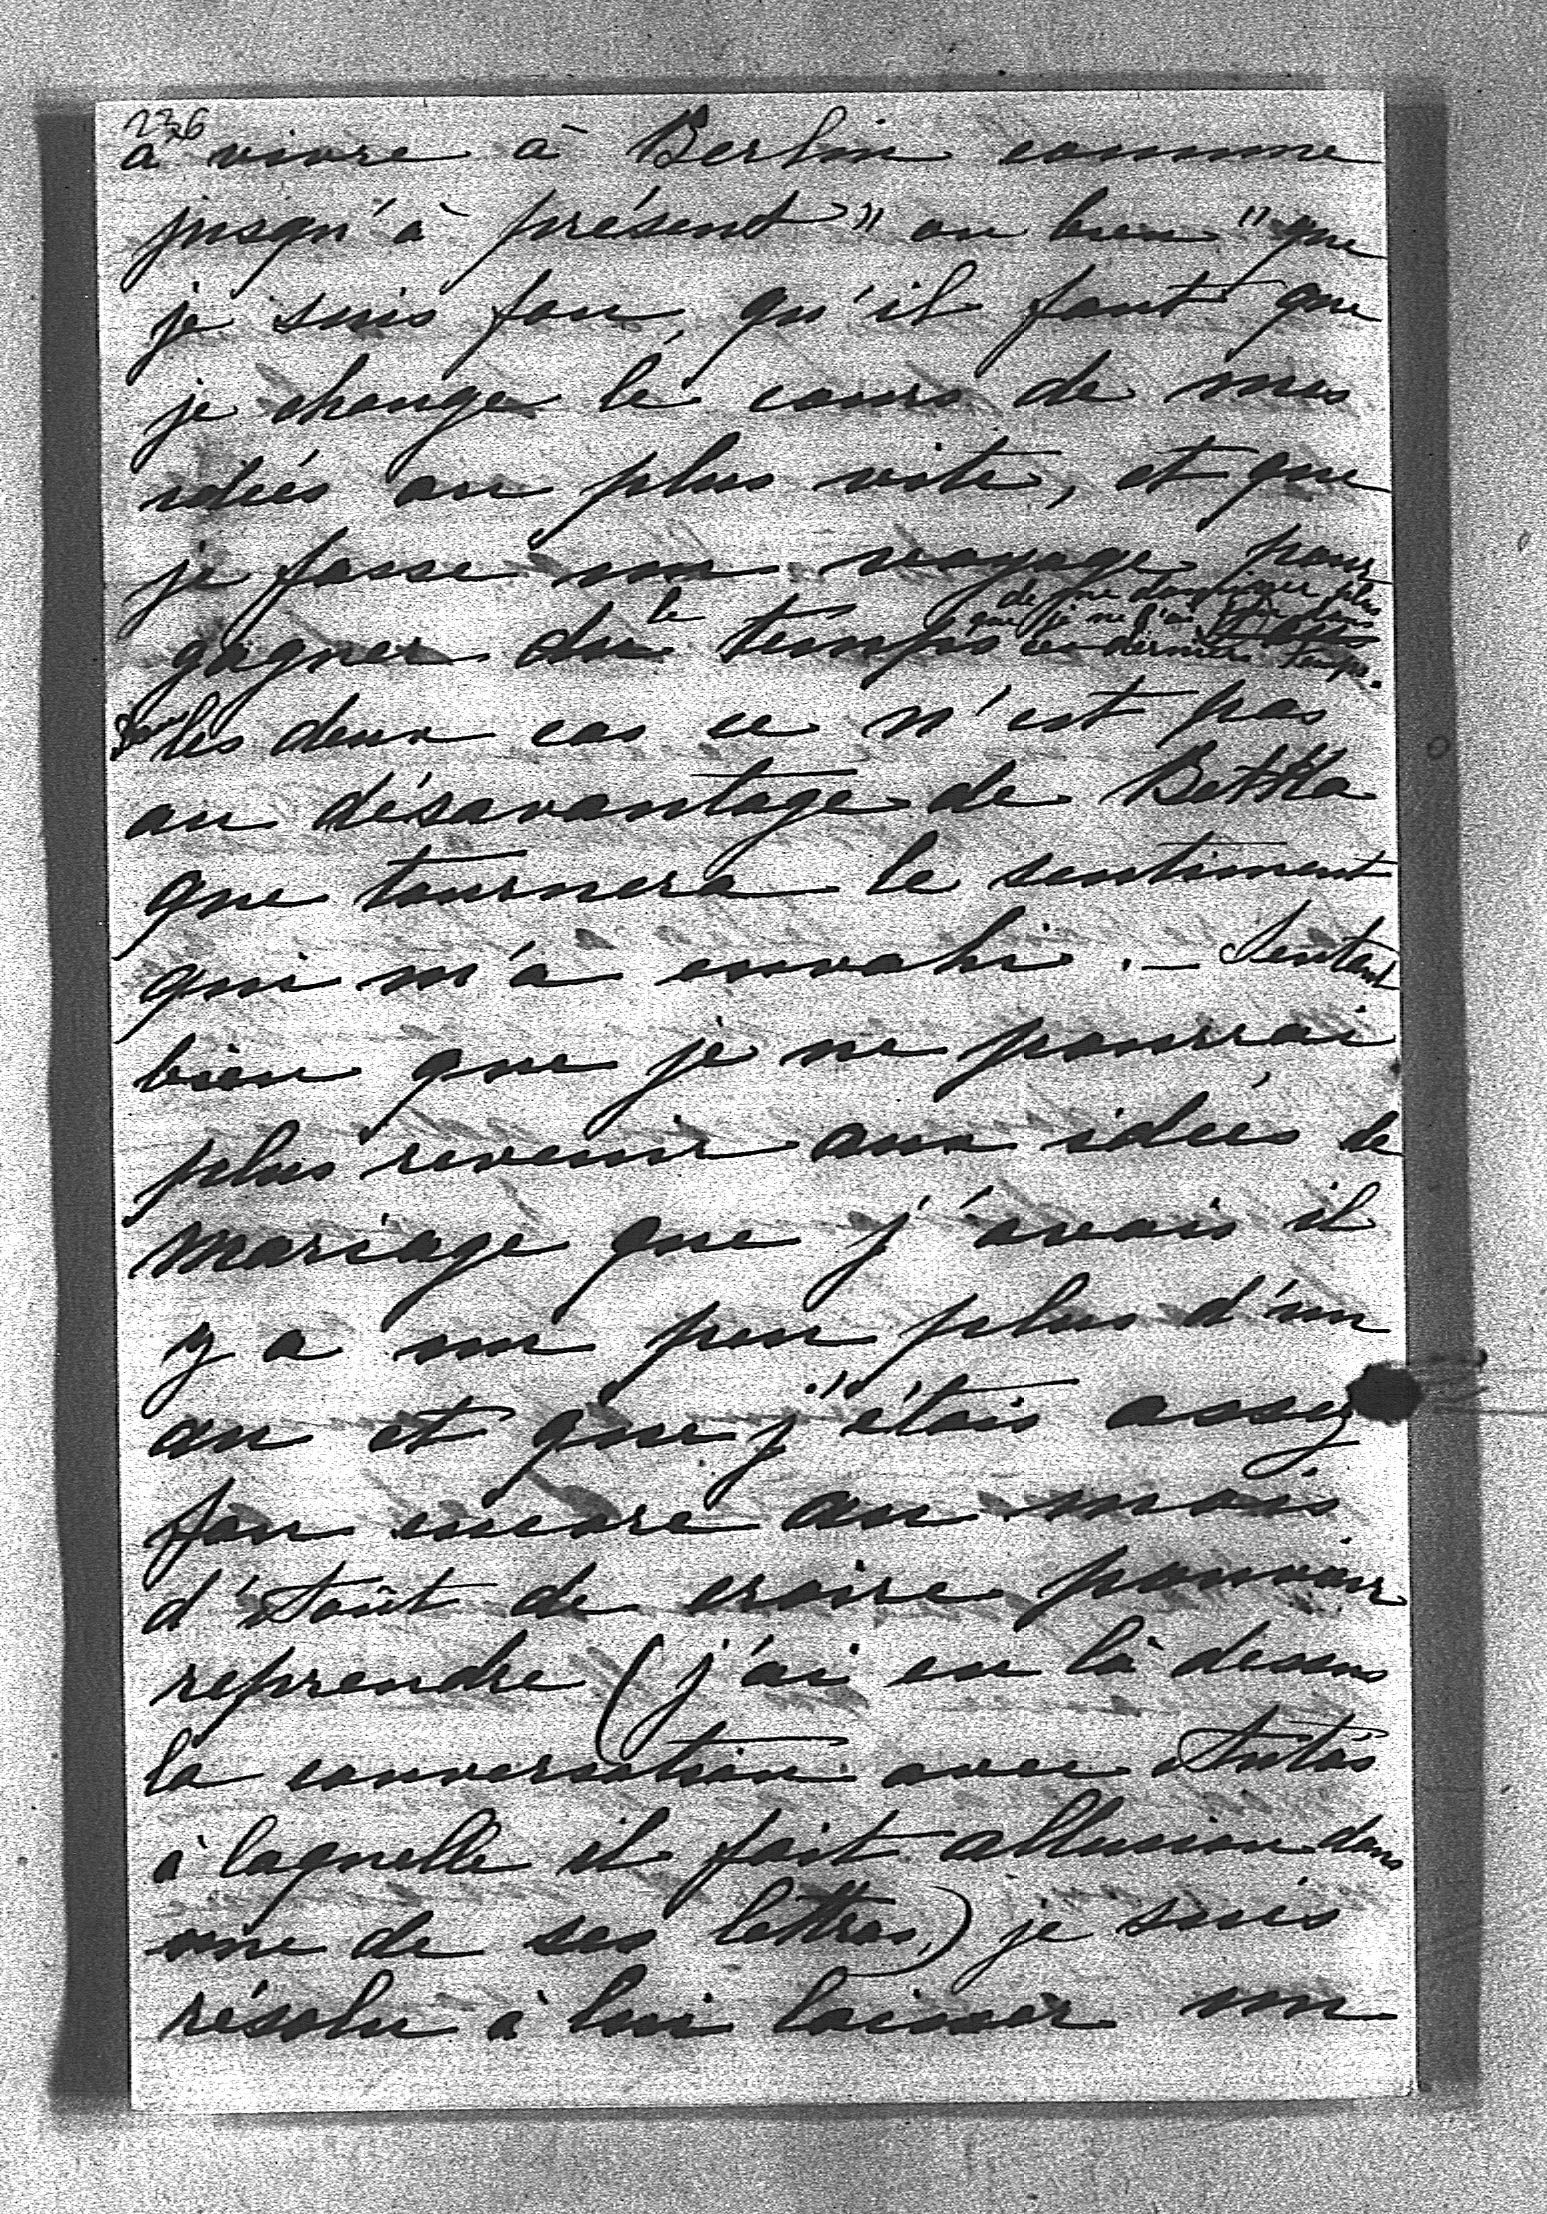 226
à vivre à Berlin comme
jusqu'à présent" ou bien "que
je suis fou, qu'il faut que
je change le cours de mes
idées au plus vite, et que
je fasse un voyage pour
gagner du le temps de me dominer plus
que je ne l'ai
ces derniers temps.
Dans les deux cas ce n'est pas
au désavantage de Betka
que tournera le sentiment
qui m'a envahi. — Sentant
bien que je ne pourrai
plus revenir aux idées de
mariage que j'avais il
y a un peu plus d'un
an et que j'étais assez
fou encore au mois
d'Août de croire pouvoir
reprendre (j'ai eu là dessus
la conversation avec
à laquelle il fait allusion dans
une de ses lettres,) je suis
résolu à lui laisser un